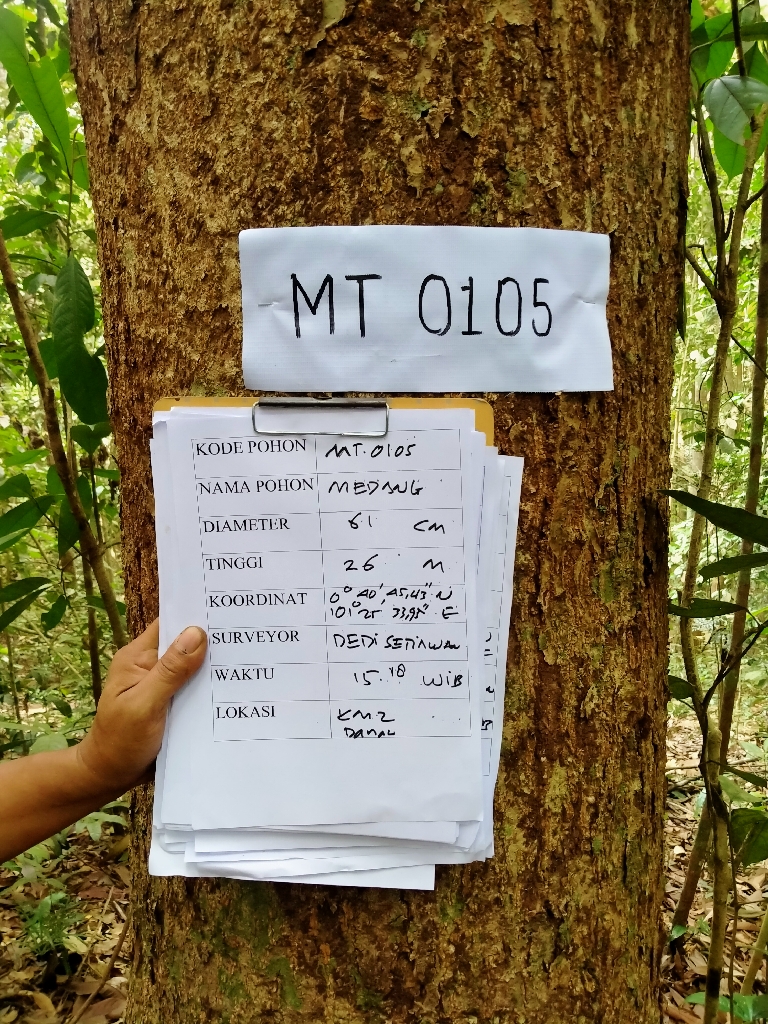 MT 0105
KODE POHON MT.0105
NAMA POHON MEDANG
DIAMETER 61 CM
TINGGI 26 M
KOORDINAT 0° 40' 45,43" N
101° 25' 33,95" E
SURVEYOR DEDI SETIAWAN
WAKTU 15.18 WIB
LOKASI KM2